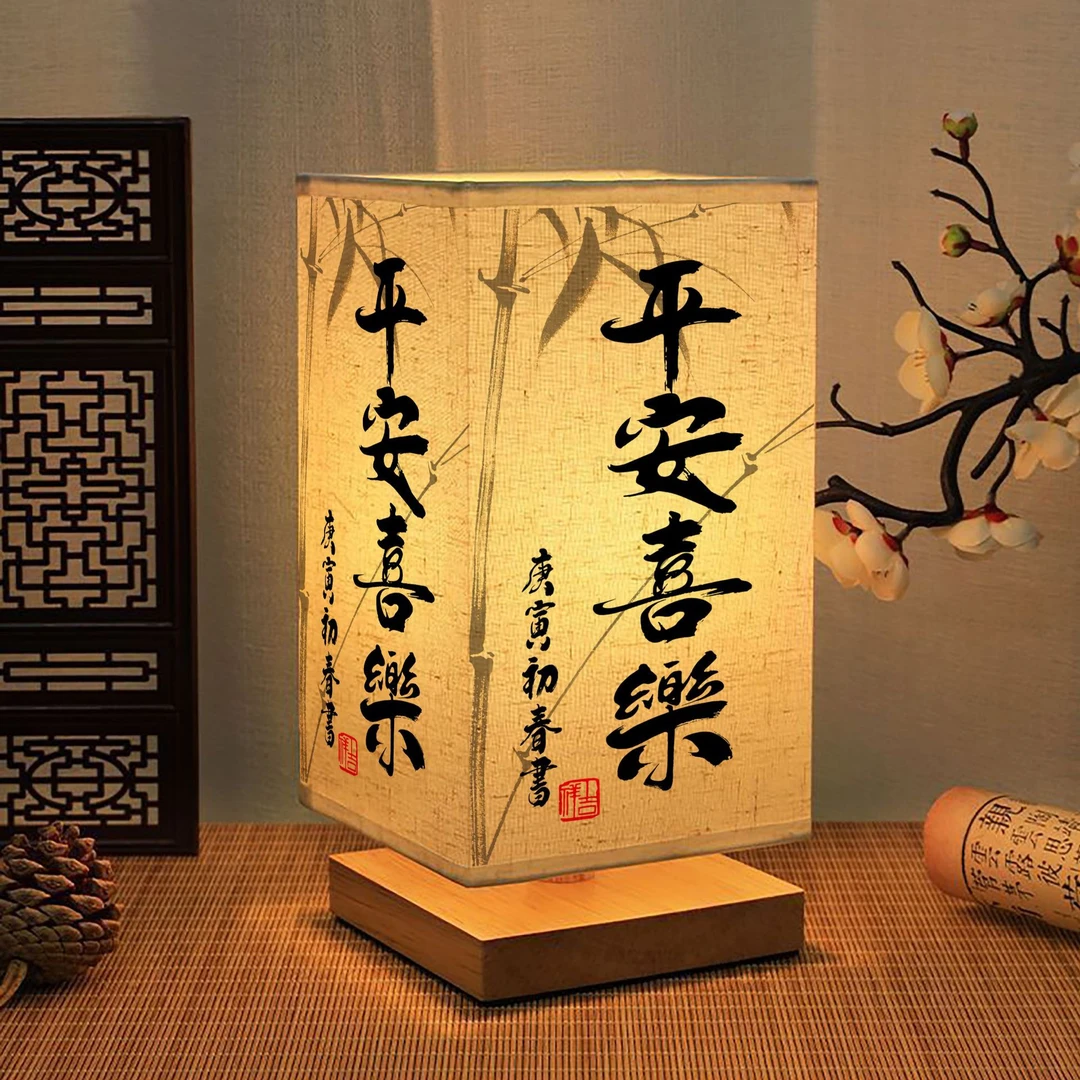 平安喜樂
庚寅初春書
吉祥
平安喜樂
庚寅初春書
吉祥